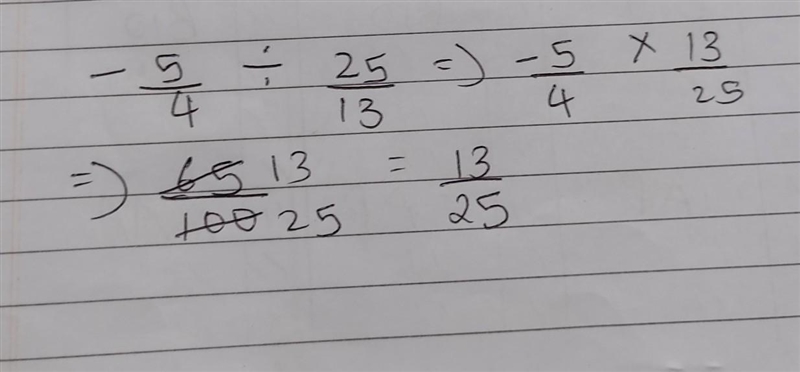 - 5/4 ÷ 25/13 => -5/4 × 13/25
=> 65/100 13/25 = 13/25